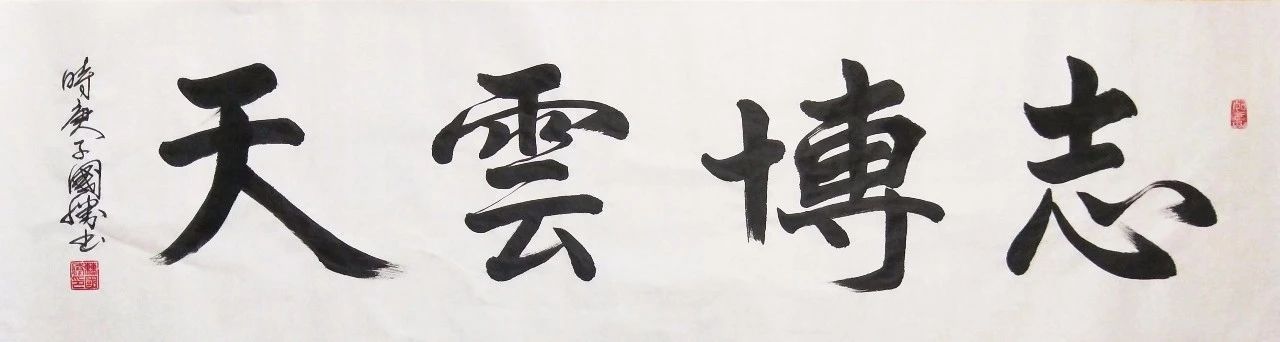 志博雲天
時庚子國勝書